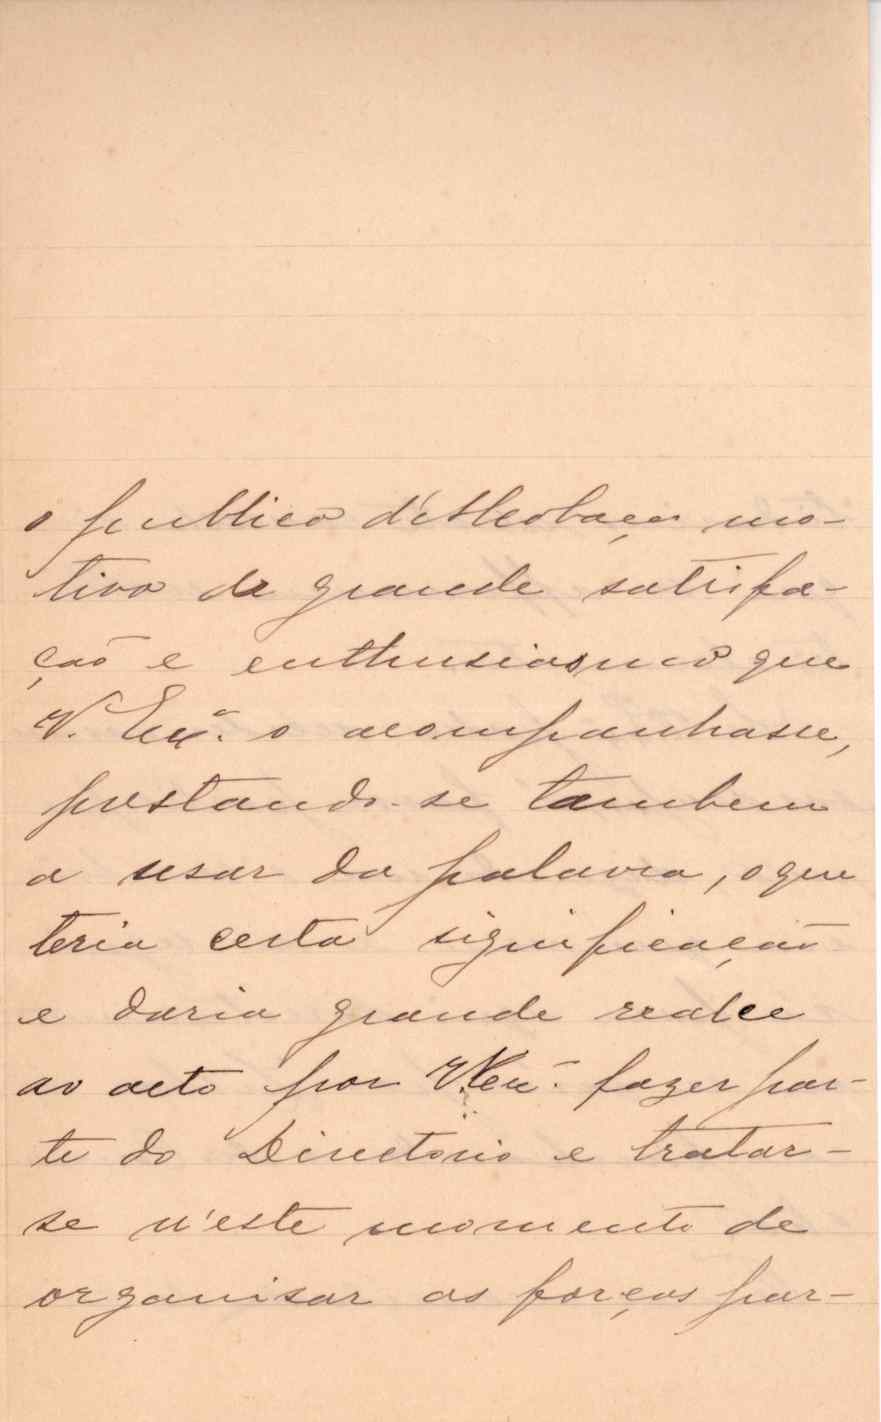 o publico d'Alcobaça mo-
tivo de grande satisfa-
ção e enthusiasmo que
V. Exª. o acompanhasse,
prestando-se tambem
a usar da palavra, o que
teria certa significação
e daria grande realce
ao acto por V. Exª. fazer par-
te do Directorio e tratar-
se n'este momento de
organisar as forças par-